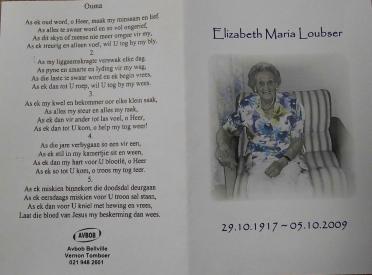 Ouma
As ek oud word, o Heer, maak my minsaam en lief.
As alles te swaar word en so vol ongerief,
As dit skyn of mense nie meer omgee vir my,
As ek treurig en alleen voel, wil U tog by my bly.
2.
As my liggaamskragte verswak elke dag.
As pyne en smarte en lyding vir my wag,
As die laste te swaar word en ek begin vrees,
As ek dan tot U roep, wil U tog by my wees.
3.
As ek my kwel en bekommer oor elke klein saak,
As alles my steur en alles my raak,
As ek dan vir ander tot las voel, o Heer,
As ek dan tot U kom, o help my tog weer!
4.
As die jare verbygaan so een vir een,
As ek stil in my kamertjie sit en ween,
As ek dan my hart voor U blootlê, o Heer
As ek so tot U kom, o troos my tog teer.
5.
As ek miskien binnekort die doodsdal deurgaan
As ek eersdaags miskien voor U troon sal staan,
As ek dan voor U kniel met hewing en vrees,
Laat die bloed van Jesus my beskerming dan wees.
AVBOB
Avbob Bellville
Vernon Tomboer
021 948 2601
Elizabeth Maria Loubser
29.10.1917 ~ 05.10.2009